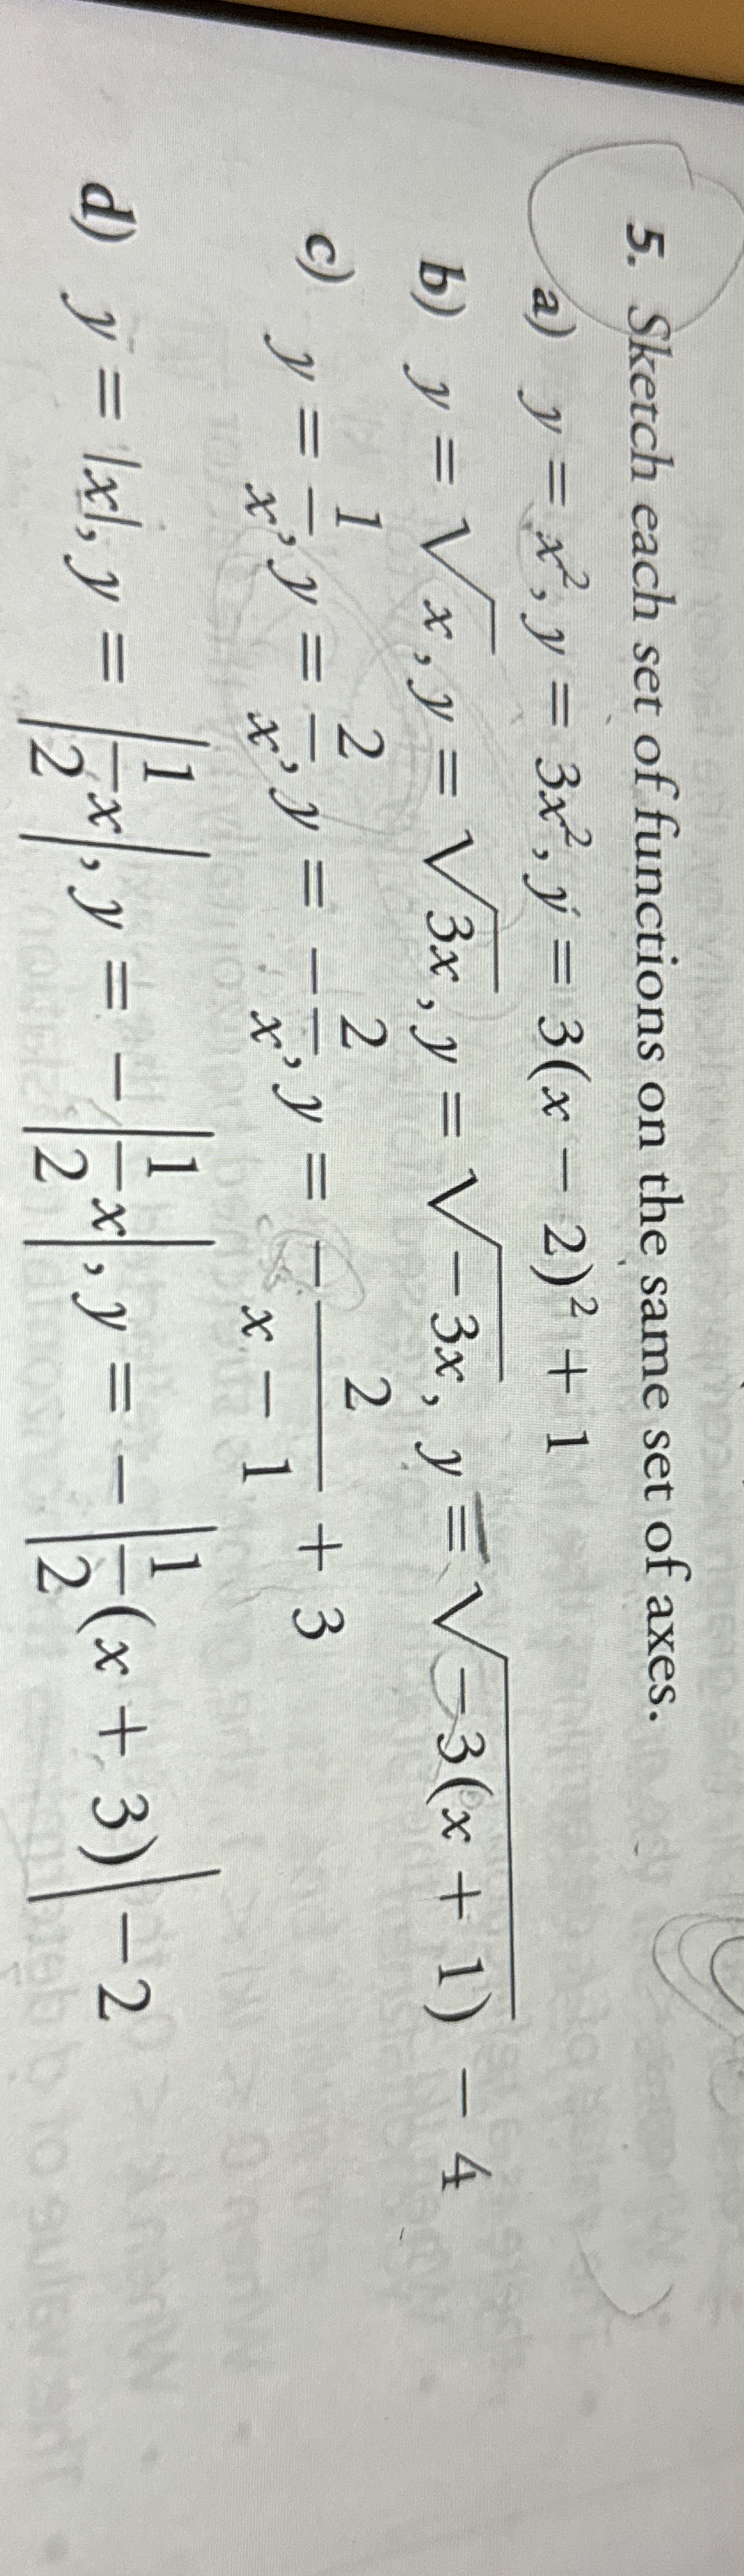 5. Sketch each set of functions on the same set of axes.
a) y = x², y = 3x², y = 3(x − 2)² + 1
b) y = √x, y = √3x, y = √−3x, y = √−3(x + 1) − 4
c) y = 1/x, y = 2/x, y = −2/x, y = −2/(x − 1) + 3
d) y = |x|, y = |1/2 x|, y = −|1/2 x|, y = −|1/2 (x + 3)| − 2